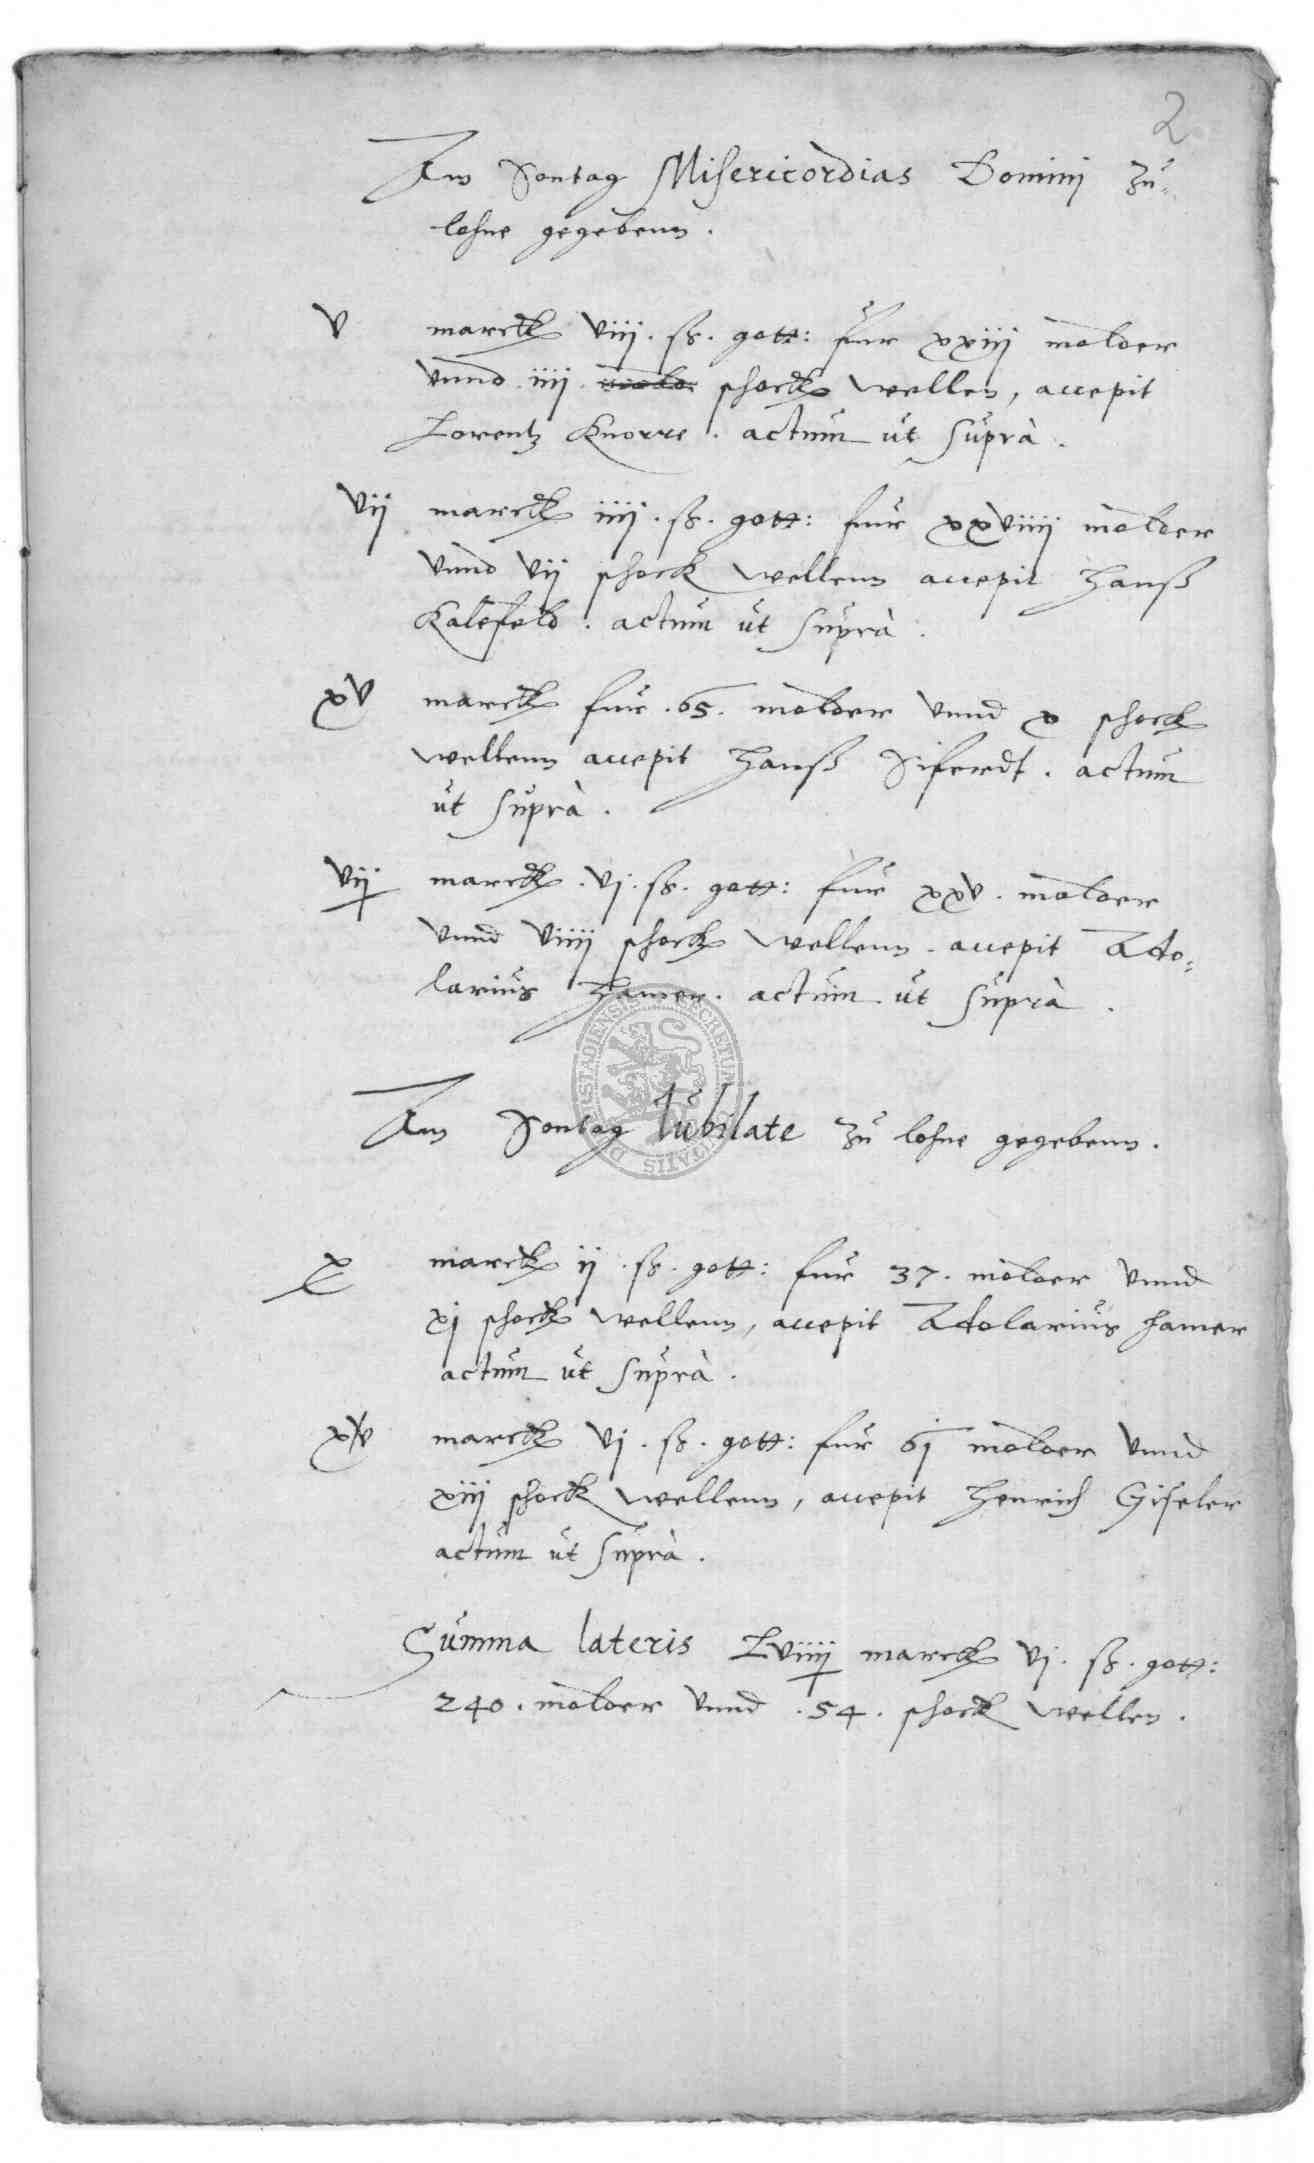 2
Am Sontag Misericordias Domini zu-
lohne gegebenn.
v marck viij. ß. gott: für xxiij malder
vnnd iiij. schock wellen, accepit
Lorentz Knorre. actum ut suprà.
vij marck iiij. ß. gott: fuer xxviiij malder
vnnd vij schock wellenn accepit Hanß
Kalefeld. actum ut suprà.
xv marck fur .65. malder vnnd x schock
wellenn accepit Hanß Siferdt. actum
ut suprà.
vij marck .vj. ß. gott: fur xxv. malder
vnnd viiij schock wellenn. accepit Ado-
larius Hamer. actum ut suprà.
Am Sontag Iubilate zu lohne gegebenn.
x marck ij. ß. gott: fur 37. malder vnnd
xj schock wellenn, accepit Adolarius Hamer
actum ut suprà.
xv marck vj. ß. gott: fur 61 malder vnnd
xiij schock wellenn, accepit Henrich Giseler
actum ut suprà.
Summa lateris Lviiij marck vj. ß. gott:
240. malder vnnd .54. schock wellen.